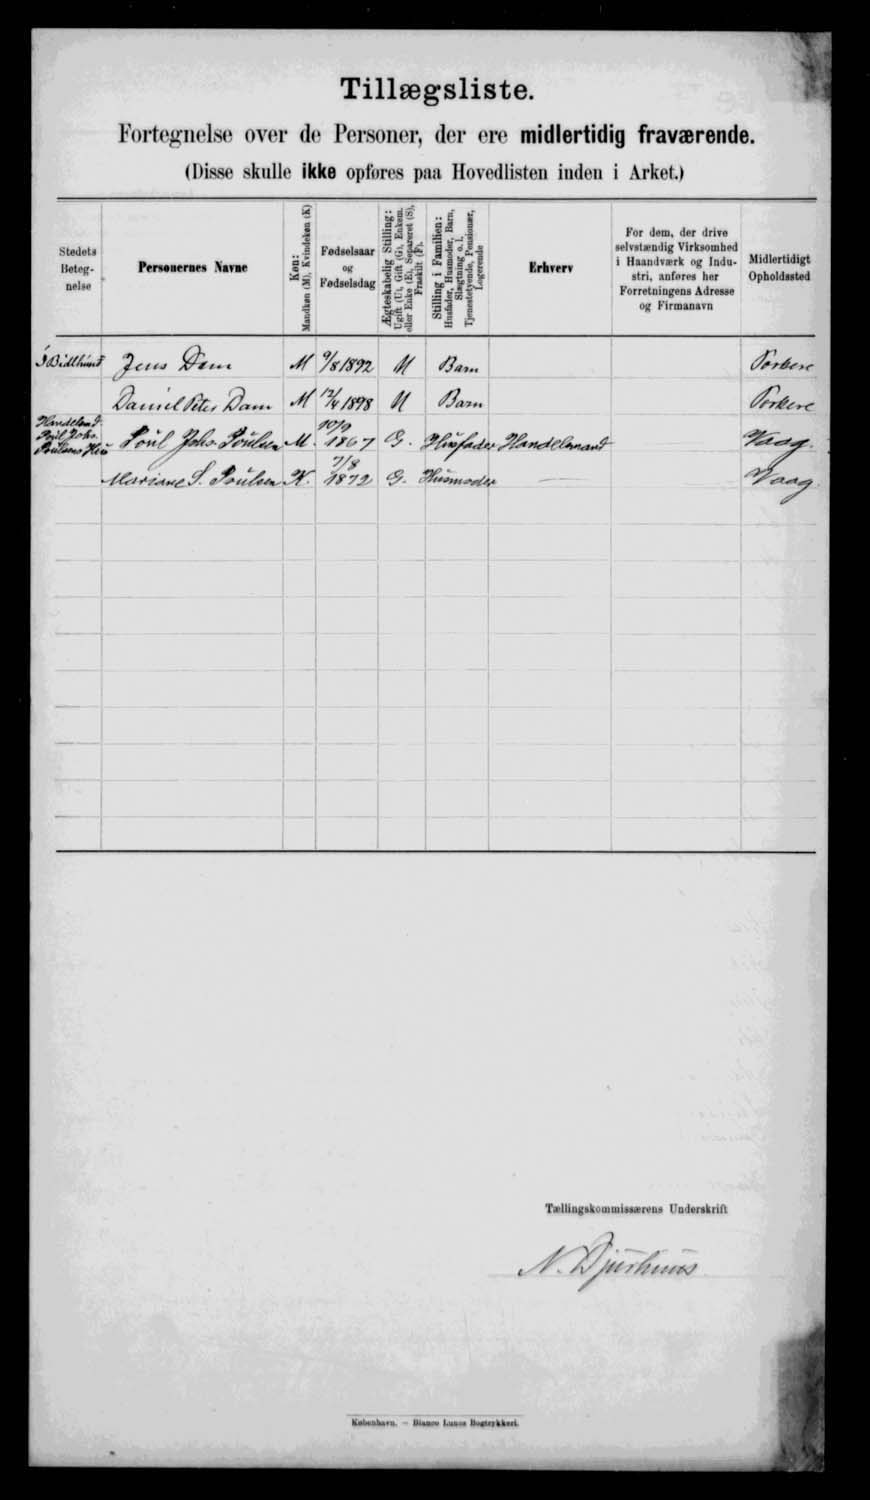 Tillægsliste.
Fortegnelse over de Personer, der ere midlertidig fraværende.
(Disse skulle ikke opføres paa Hovedlisten inden i Arket.)
Stedets Betegnelse
Personernes Navne
Køn:
Mandkøn (M), Kvindekøn (K)
Fødselsaar
og
Fødselsdag
Ægteskabelig Stilling:
Ugift (U), Gift (G), Enkem.
eller Enke (E), Separeret (S),
Fraskilt (F).
Stilling i Familien:
Husfader, Husmoder, Barn,
Slægtning o. l.
Tjenestetyende, Pensionær,
Logerende
Erhverv
For dem, der drive
selvstændig Virksomhed
i Haandværk og Indu-
stri, anføres her
Forretningens Adresse
og Firmanavn
Midlertidigt
Opholdssted
Jens Dam M 9/8 1892 U Barn Porkere
Daniel Peter Dam M 12/4 1898 U Barn Porkere
Handelsmd. Poul Johs. Poulsens Hus Poul Johs. Poulsen M. 10/9 1867 G. Husfader Handelsmand Vaag.
Mariane S. Poulsen K. 7/8 1872 G. Husmoder — Vaag.
Tællingskommissærens Underskrift
N. Djurhuus
København. — Bianco Lunos Bogtrykkeri.